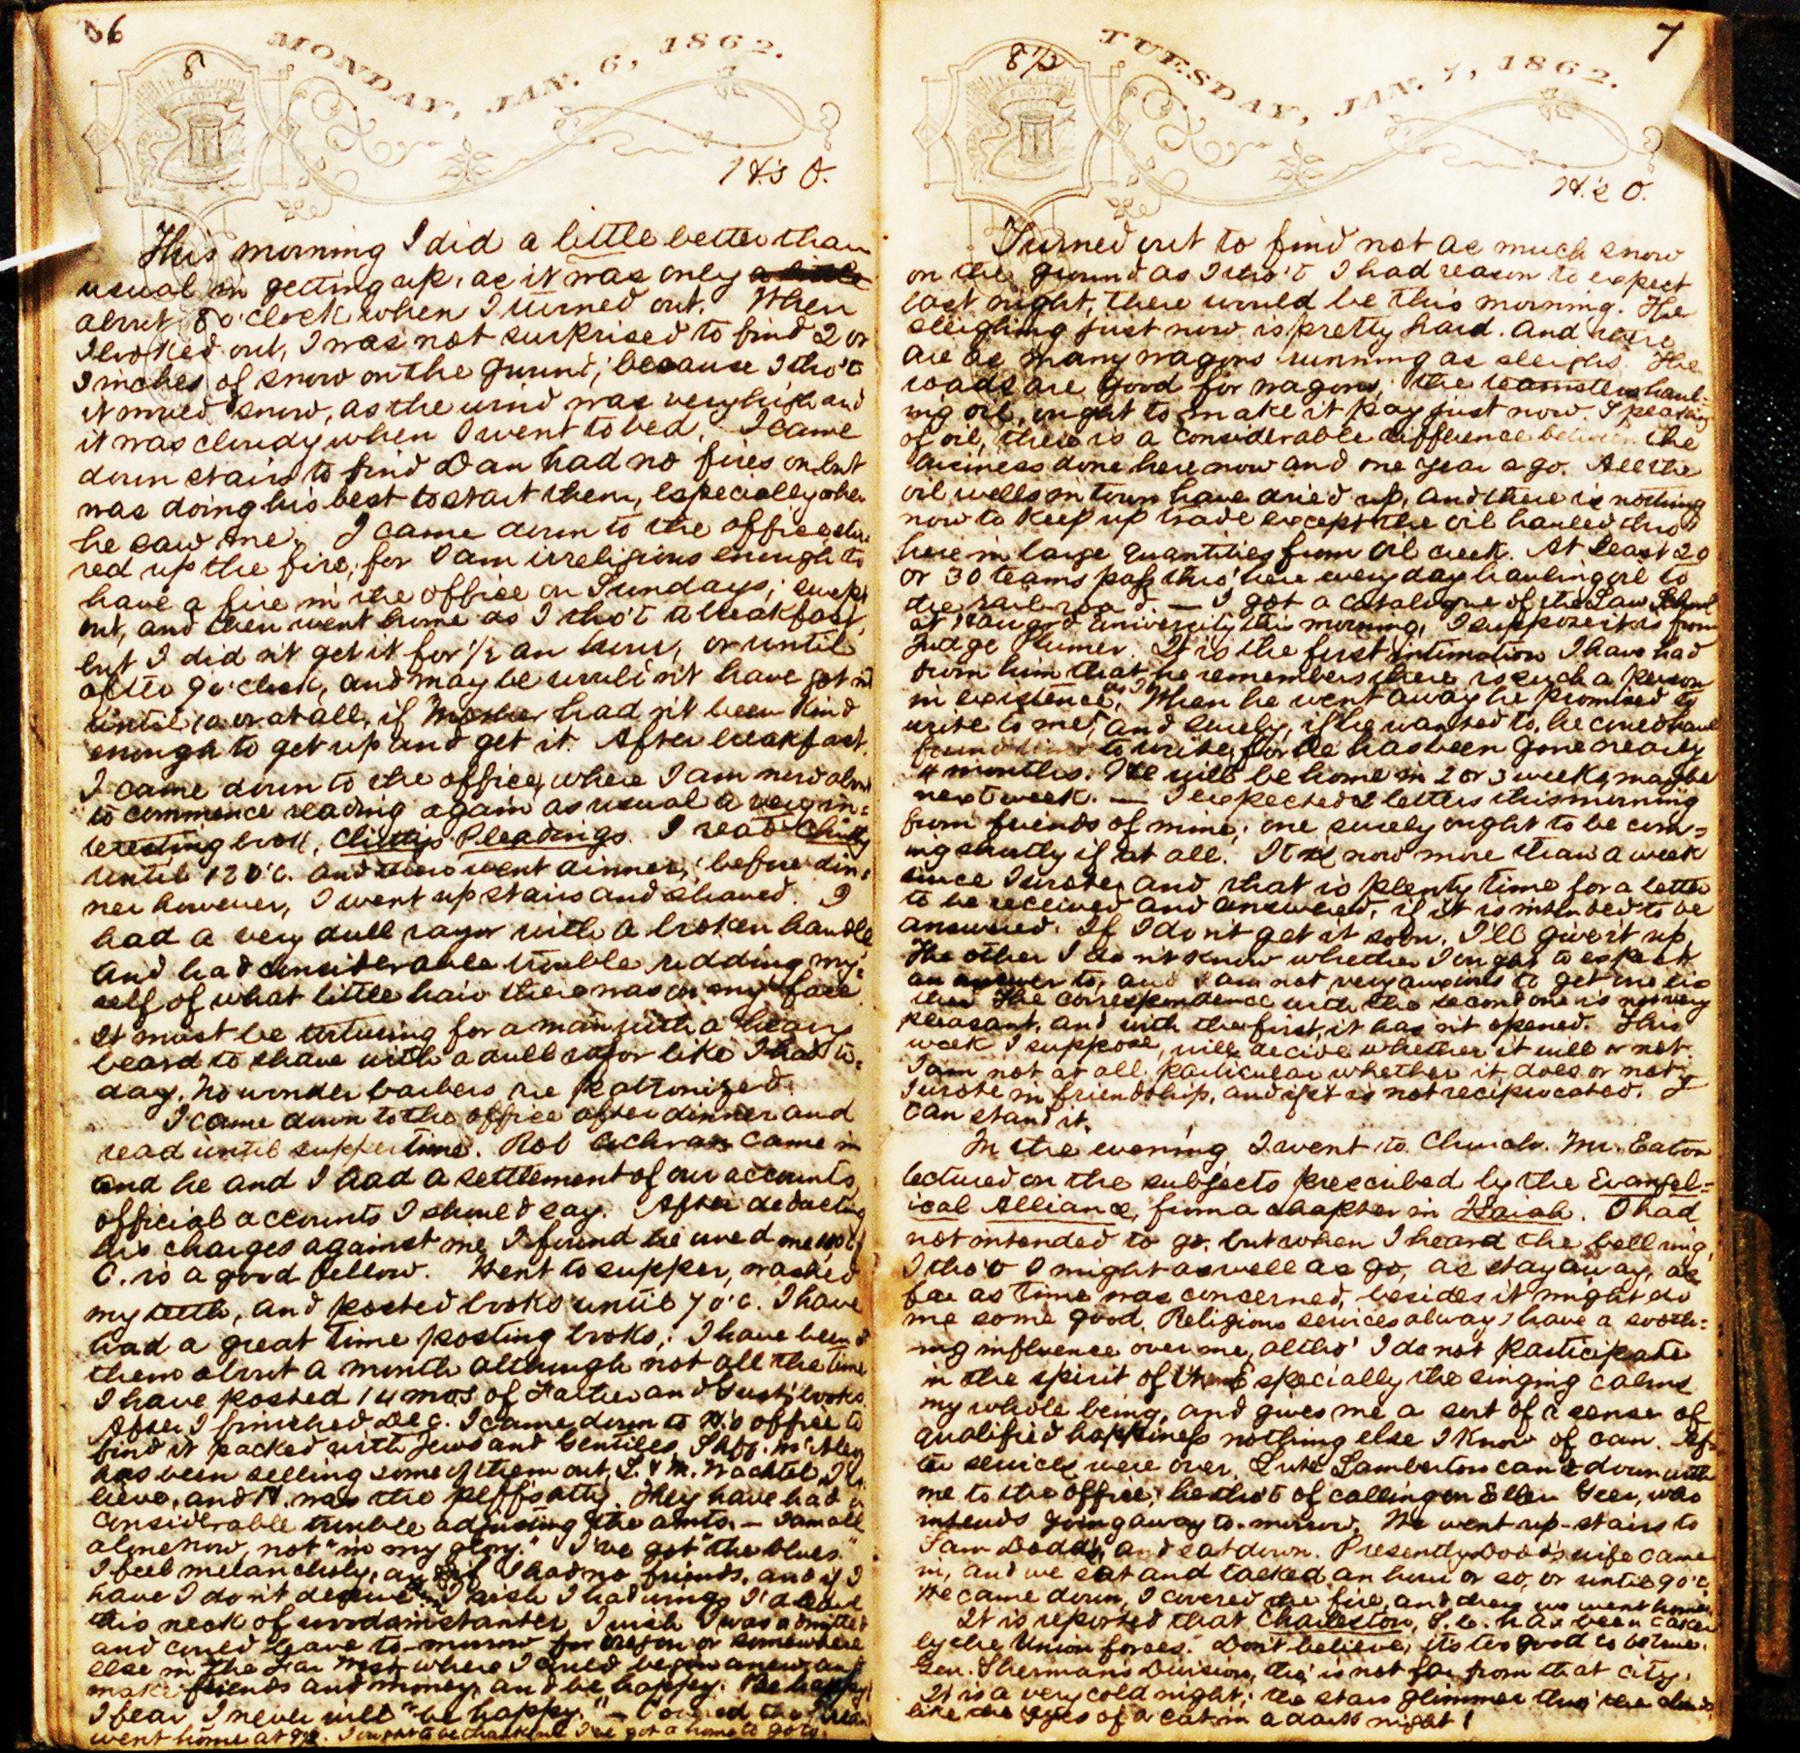 36
8
MONDAY, JAN. 6, 1862.
H.'s O.
This morning I did a little better than
usual in getting up, as it was only a little
about 8 o'clock when I turned out. When
I looked out, I was not surprised to find 2 or
3 inches of snow on the ground, because I tho't
it snow, as the wind was very high and
it was cloudy when I went to bed. I came
down stairs to find Dan had no fires on but
was doing his best to start them, especially when
he saw me. I came down to the office, stir-
red up the fire, for I am irreligious enough to
have a fire in the office on Sundays; swept
out, and then went home as I tho't to breakfast,
but I did n't get it for 1/2 an hour, or until
after 9 o'clock, and may be would n't have got it
until 10 or at all, if Mother had n't been kind
enough to get up and get it. After breakfast,
I came down to the office, where I am now about
to commence reading again as usual a very in-
teresting book, Chitty's Pleadings. I read Chitty
until 12 o'c. and then went dinner; before din-
ner however, I went up stairs and shaved. I
had a very dull razor with a broken handle
and had considerable trouble ridding my-
self of what little hair there was on my face.
It must be torturing for a man with a heavy
beard to shave with a dull razor like I had to-
day. No wonder barbers are patronized.
I came down to the office after dinner and
read until supper time. Rob Cochran came in
and he and I had a settlement of our accounts,
official accounts I should say. After deducting
his charges against me I found he owed me
C. is a good fellow. Went to supper, washed
my teeth, and posted books until 7 o'c. I have
had a great time posting books; I have been at
them about a month although not all the time
I have posted 14 mos of Father and Gust's books.
After I finished Dec. I came down to H's office to
find it packed with Jews and Gentiles. Shff. McAlevy
has been selling some of them out, S. & M. Wachtel I be-
lieve, and H. was the plffs atty. They have had a
considerable trouble adjusting the amts. — I am all
alone now, not "in my glory." I've got "the blues."
I feel melancholy, as if I had no friends, and if I
have I don't deserve I wish I had wings I'd leave
this neck of woods instanter, I wish I was admitted
and could leave to-morrow for Oregon or somewhere
else in the Far West where I could begin anew, and
make friends and money, and be happy. Be happy!
I fear I never will "be happy." — Covered the
went home at 9 o'c. I ought to be thankful I've got a home to go to.
7
8 1/2
TUESDAY, JAN. 7, 1862.
H.'s O.
Turned out to find not as much snow
on the ground as I tho't I had reason to expect
last night, there would be this morning. The
sleighing just now is pretty hard. And there
are as many wagons running as sleighs. The
roads are good for wagons; the teamsters haul-
ing oil, ought to make it pay just now. Speaking
of oil, there is a considerable difference between the
business done here now and one year ago. All the
oil wells in town have dried up, and there is nothing
now to keep up trade except the oil hauled thro'
here in large quantities from Oil creek. At least 20
or 30 teams pass thro' here every day hauling oil to
the rail-road. — I got a catalogue of the Law School
at Harvard University this morning, I suppose it is from
Judge Plumer. It is the first intimation I have had
from him that he remembers there is such a person
in existence as I. When he went away he promised to
write to me, and surely, if he wanted to, he could have
found time to write, for he has been gone nearly
4 months. He will be home in 2 or 3 weeks, maybe
next week. — I expected 2 letters this morning
from friends of mine; one surely ought to be com-
ing shortly if at all. It is now more than a week
since I wrote, and that is plenty time for a letter
to be received and answered, if it is intended to be
answered. If I don't get it soon, I'll give it up.
The other I don't know whether I ought to expect
an answer to, and I am not very anxious to get
The correspondence with the second one is not very
pleasant, and with the first, it has n't opened. This
week I suppose, will decide whether it will or not.
I am not at all particular whether it does or not;
I wrote in friendship, and if it is not reciprocated, I
can stand it.
In the evening I went to Church. Mr. Eaton
lectured on the subjects prescribed by the Evangel-
ical Alliance, from a chapter in Isaiah. I had
not intended to go, but when I heard the bell ring,
I tho't I might as well as go, as stay away, as
far as time was concerned, besides it might do
me some good. Religious services always have a sooth-
ing influence over me, altho' I do not participate
in the spirit of them. Especially the singing calms
my whole being, and gives me a sort of a sense of
qualified happiness nothing else I know of can. Af-
ter services were over, Lute Lamberton came down with
me to the office; he tho't of calling on Ellen Geer, who
intends going away to-morrow. We went up-stairs to
Sam Dodd's, and sat down. Presently Dodd's wife came
in, and we sat and talked an hour or so, or until 9 o'c.
We came down, I covered the fire, and then we went home.
It is reported that Charleston, S.C. has been taken
by the Union forces. Don't believe, its too good to be true.
Gen. Sherman's Division, tho' is not far from that city.
It is a very cold night; the stars glimmer thro' the clouds
like the eyes of a cat in a dark night!